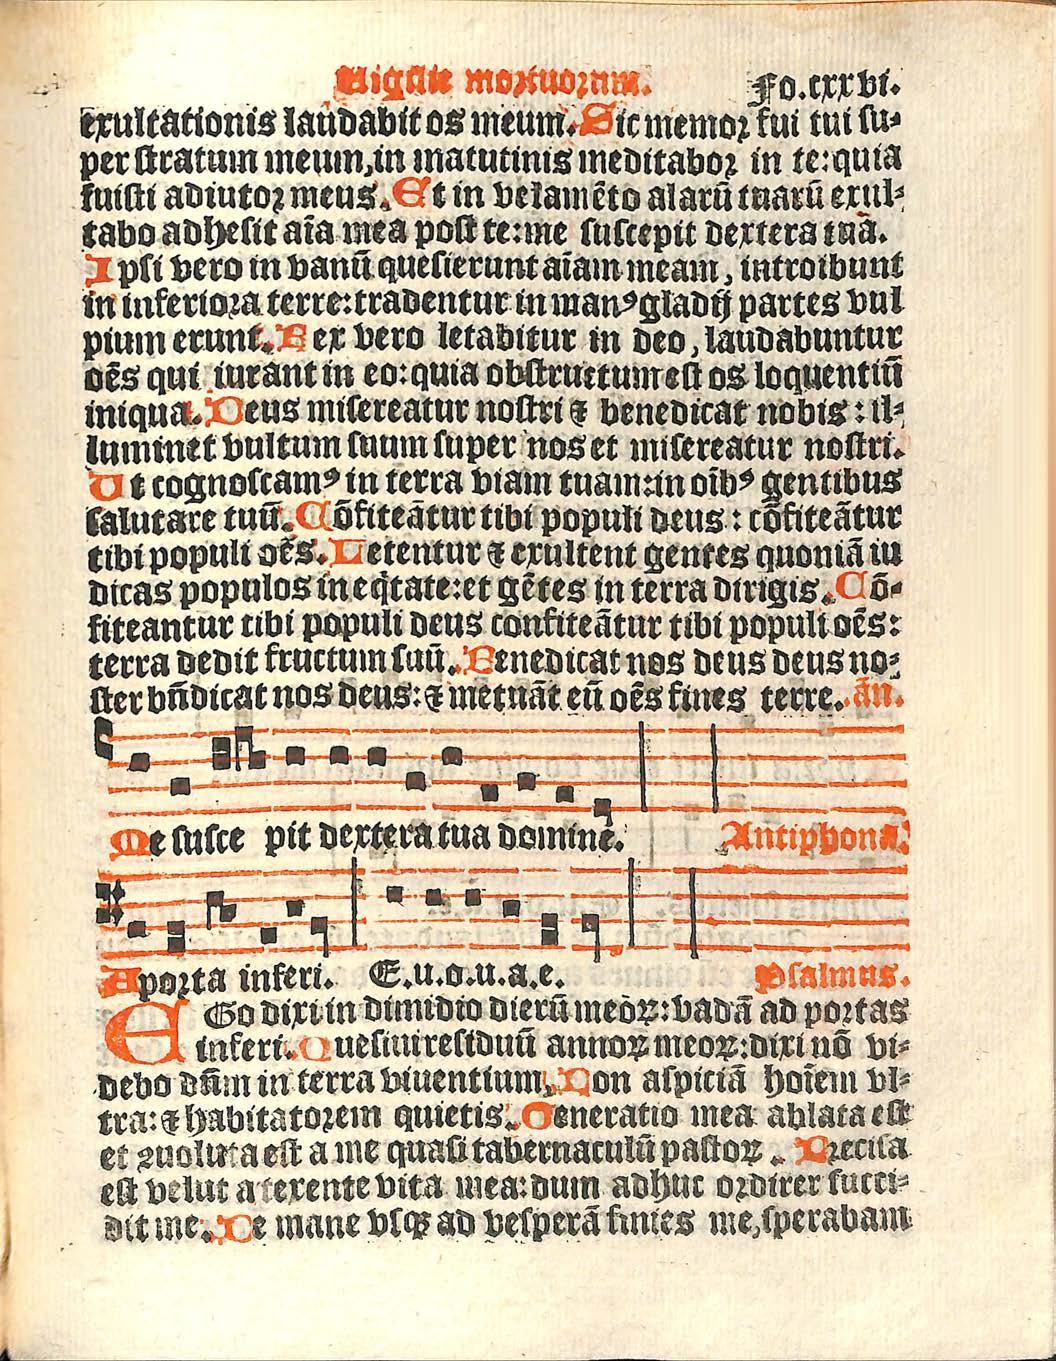 Vigilie mortuorum. Fo.cxxvi.
exultationis laudabit os meum. Sic memor fui tui su-
per stratum meum, in matutinis meditabor in te: quia
fuisti adiutor meus. Et in velamēto alarū tuarū exul-
tabo adhesit aīa mea post te: me suscepit dextera tua.
Ipsi vero in vanū quesierunt aīam meam, introibunt
in inferiora terre: tradentur in manꝰ gladij partes vul
pium erunt. Rex vero letabitur in deo, laudabuntur
oēs qui iurant in eo: quia obstructum est os loquentiū
iniqua. Deus misereatur nostri ⁊ benedicat nobis: il-
luminet vultum suum super nos et misereatur nostri.
Ut cognoscamꝰ in terra viam tuam: in oībꝰ gentibus
salutare tuū. Cōfiteātur tibi populi deus: cōfiteātur
tibi populi oēs. Letentur ⁊ exultent gentes quoniā iu
dicas populos in eq̇tate: et gētes in terra dirigis. Cō-
fiteantur tibi populi deus confiteātur tibi populi oēs:
terra dedit fructum suū. Benedicat nos deus deus no-
ster bn̄dicat nos deus: ⁊ metuāt eū oēs fines terre. an̄.
Me susce pit dextera tua domine. Antiphona.
A porta inferi. E.u.o.u.a.e. Psalmus.
EGo dixi in dimidio dierū meoꝝ: vadā ad portas
inferi. Quesiui residuū annoꝝ meoꝝ: dixi nō vi-
debo dn̄m in terra viuentium, Non aspiciā hoīem vl-
tra: ⁊ habitatorem quietis. Generatio mea ablata est
et ꝯuoluta est a me quasi tabernaculū pastoꝝ. Precisa
est velut a texente vita mea: dum adhuc ordirer succi-
dit me. De mane vsqꝫ ad vesperā finies me, sperabam